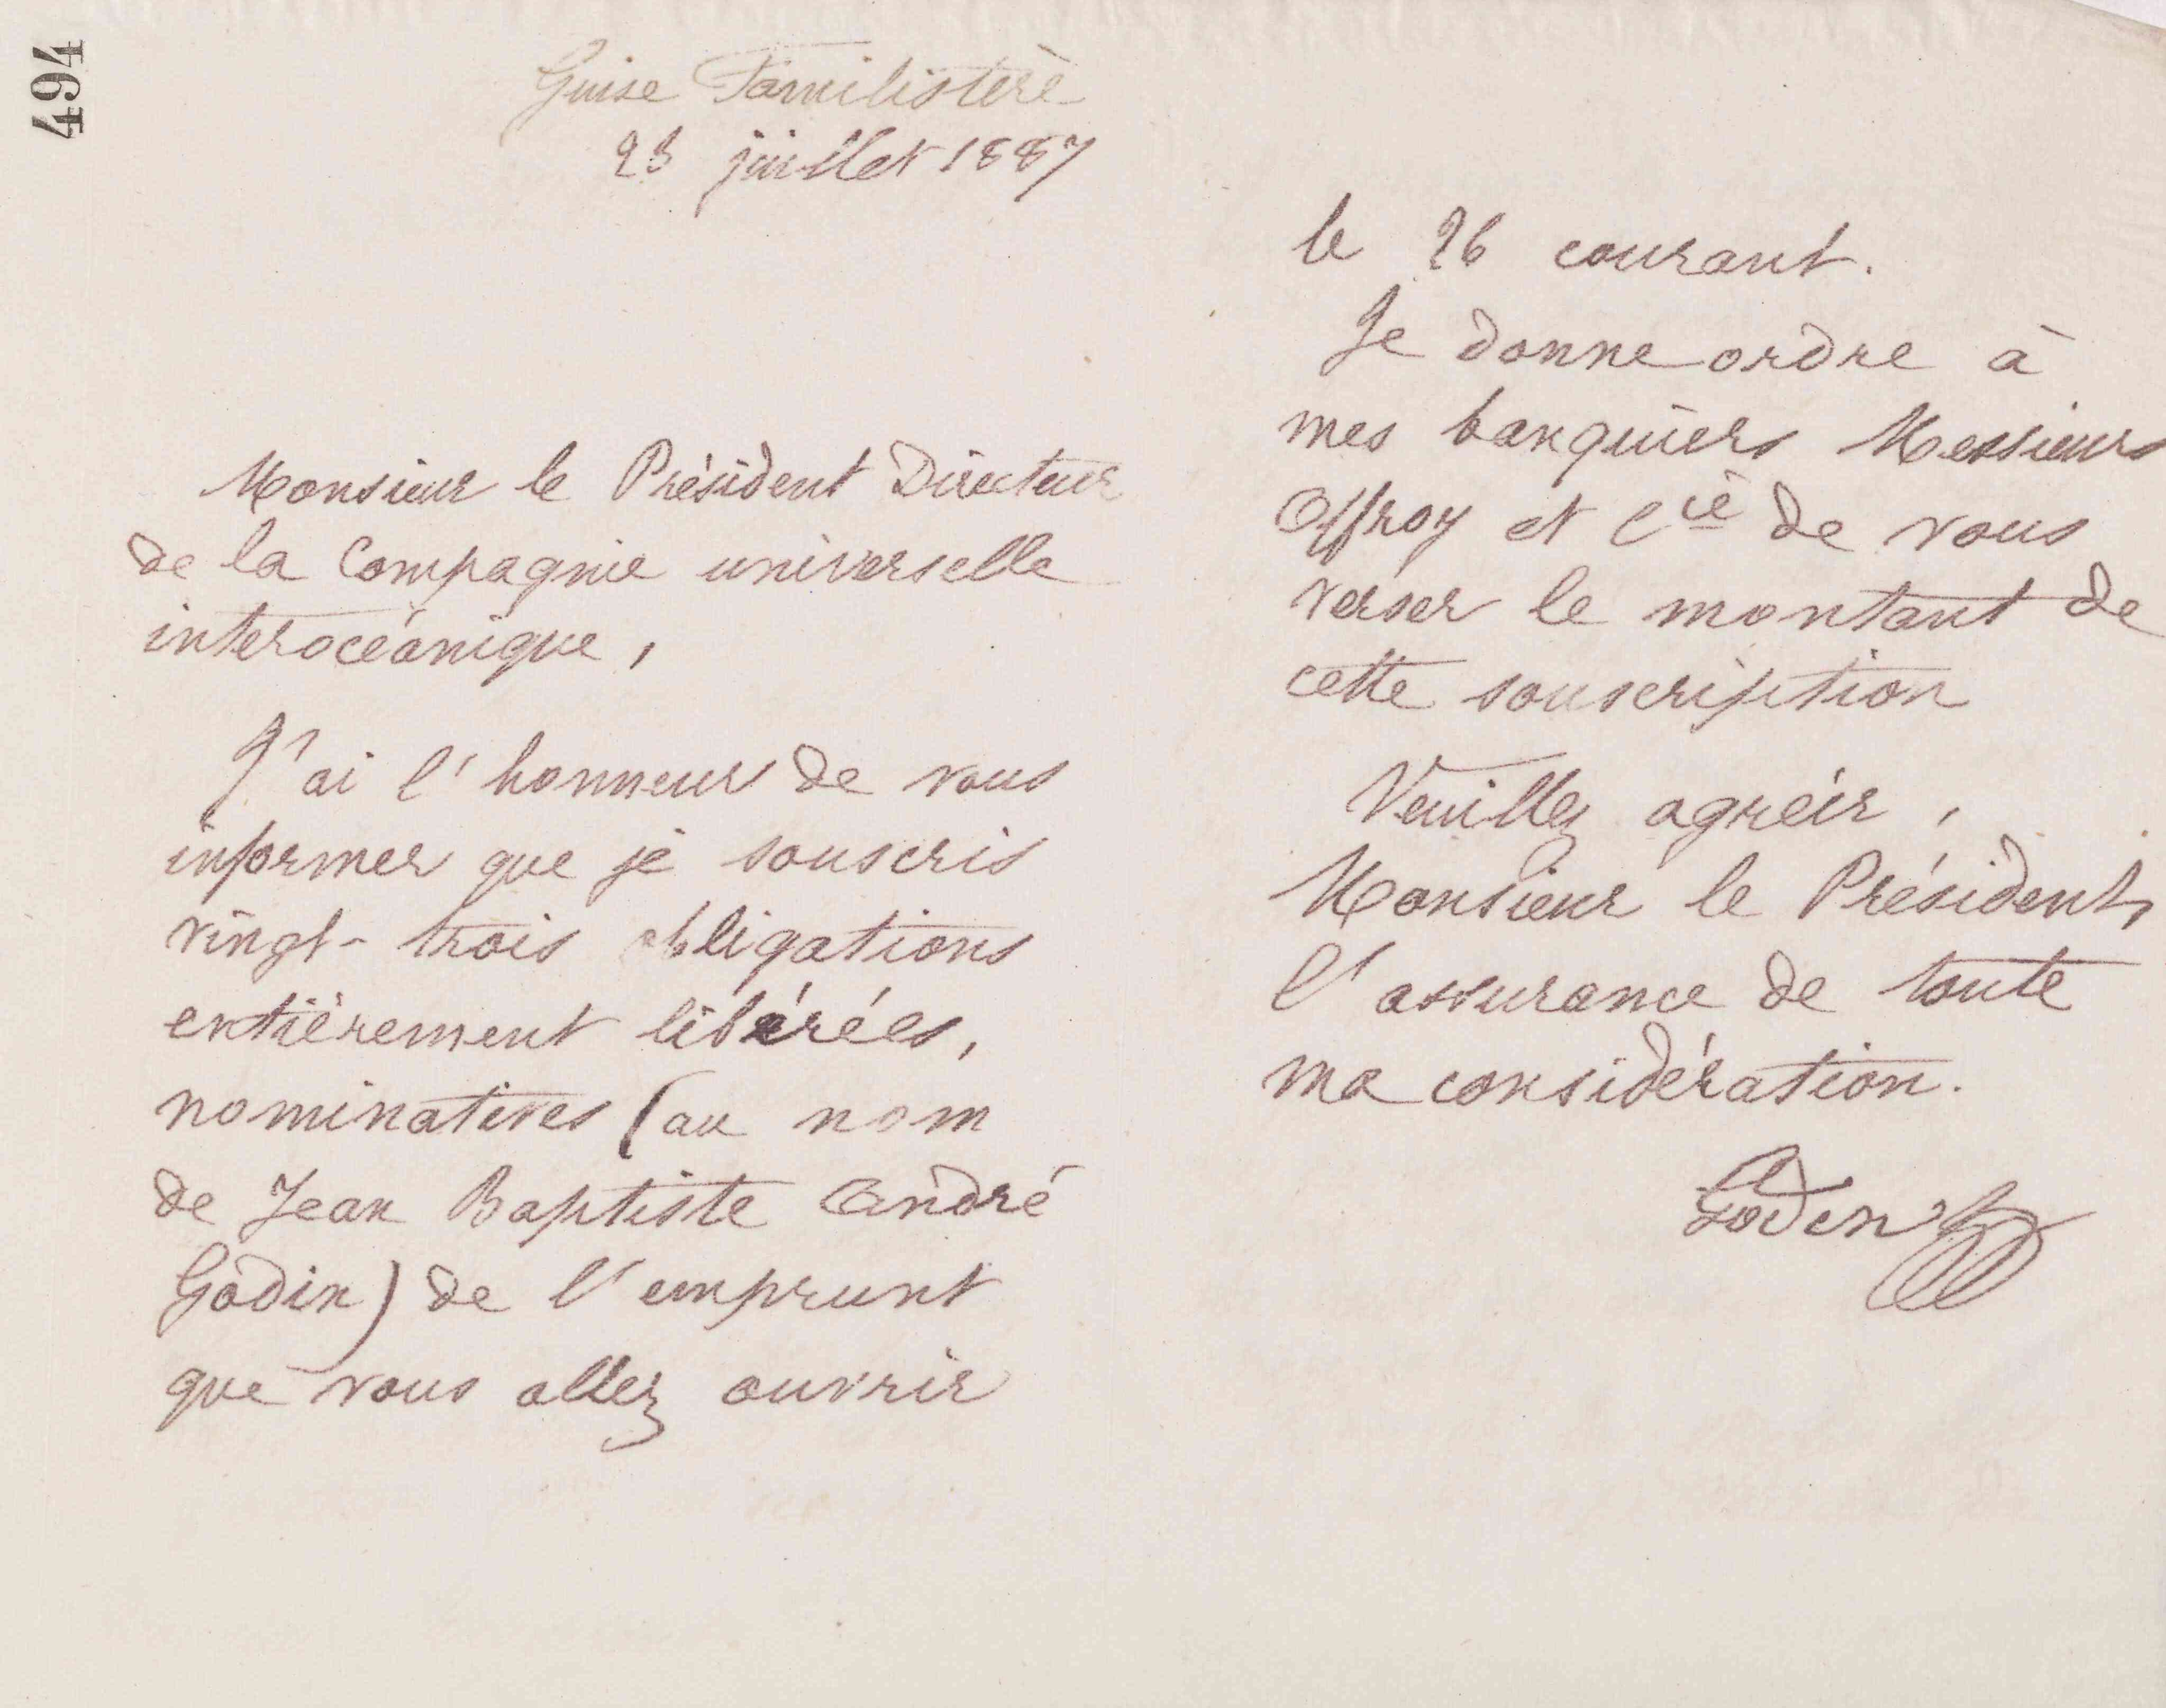 494
Guise Familistère
23 juillet 1887
Monsieur le Président Directeur
de la Compagnie universelle
interocéanique,
J'ai l'honneur de vous
informer que je souscris
vingt-trois obligations
entièrement libérées,
nominatives (au nom
de Jean Baptiste André
Godin) de l'emprunt
que vous allez ouvrir
le 26 courant.
Je donne ordre à
mes banquiers Messieurs
Offroy et Cie de vous
verser le montant de
cette souscription
Veuillez agréer,
Monsieur le Président,
l'assurance de toute
ma considération.
Godin